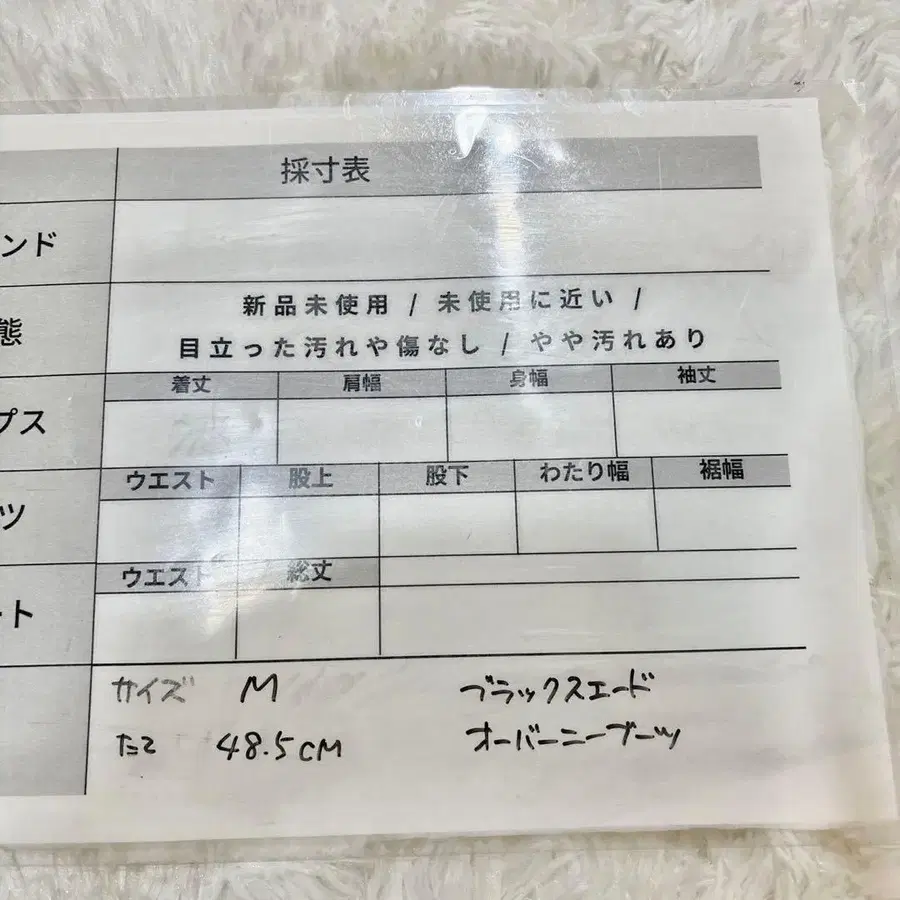 採寸表
ンド
新品未使用 / 未使用に近い /
態
目立った汚れや傷なし / やや汚れあり
着丈 肩幅 身幅 袖丈
プス
ウエスト 股上 股下 わたり幅 裾幅
ツ
ウエスト 総丈
ート
サイズ M ブラックスエード
たて 48.5cm オーバーニーブーツ